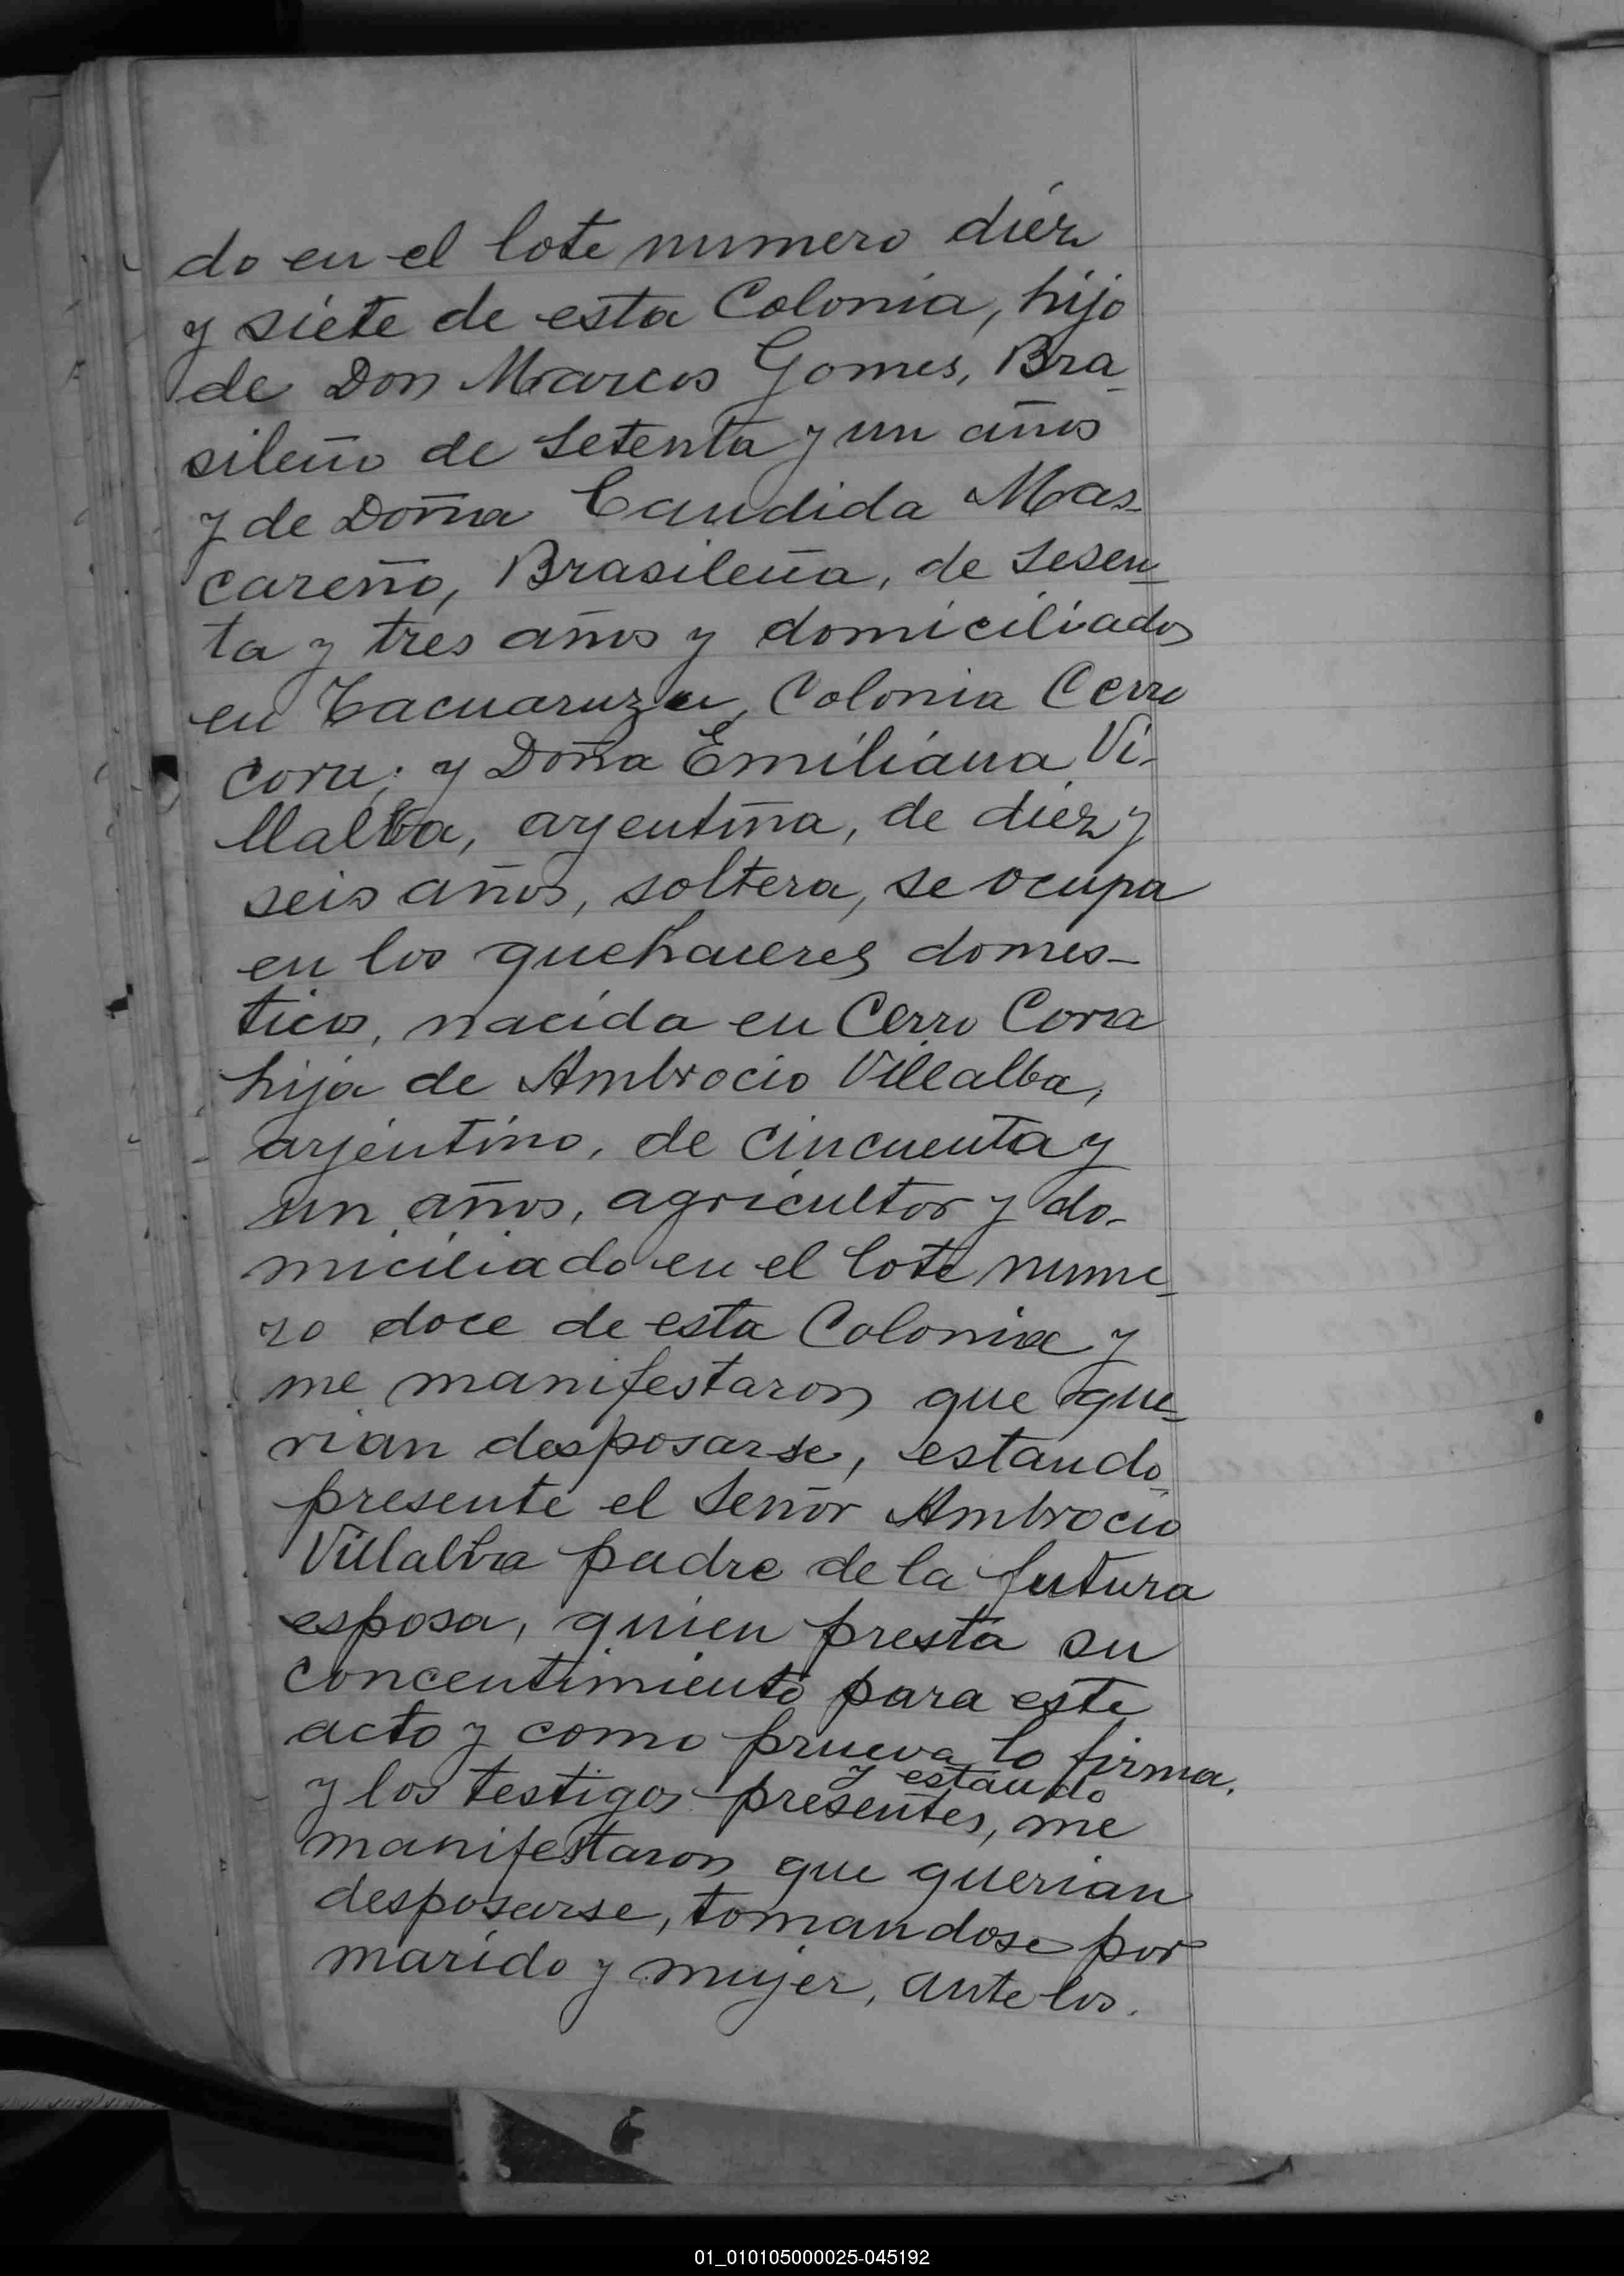 do en el lote numero diéz
y siete de esta Colonia, hijo
de Don Marcos Gomes, Bra
sileño de setenta y un años
y de Doña Candida Mas-
careño, Brasileña, de sesen
ta y tres años y domiciliados
en Tacuaruzu, Colonia Cerro
cora; y Doña Emiliana Vi-
llalba, arjentina, de diez y
seis años, soltera, se ocupa
en los quehaceres domes-
ticos, nacida en Cerro Cora
hija de Ambrocio Villalba,
arjentino, de cincuenta y
un años, agricultor y do-
miciliado en el lote nume-
ro doce de esta Colonia y
me manifestaron que que-
rian desposarse, estando
presente el Señor Ambrocio
Villalba padre de la futura
esposa, quien presta su
concentimiento para este
acto y como prueva lo firma.
y estando
y los testigos presentes, me
manifestaron que querian
desposarse, tomandose por
marido y mujer, ante los.
01_010105000025-045192